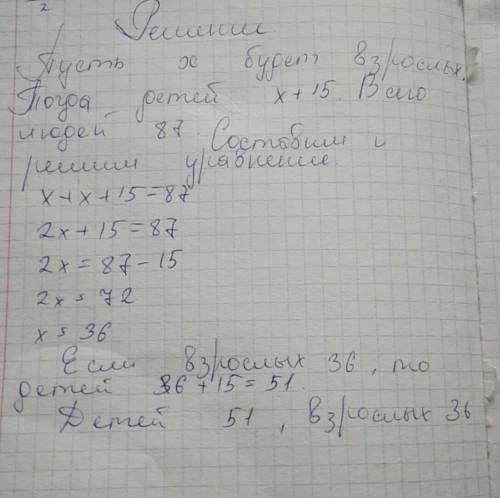 2
Решении
Пусть х будет взрослых.
Тогда детей х+15. Всего
людей 87. Составим и
решим уравнение
х+х+15=87
2х+15=87
2х=87-15
2х=72
х=36
Если взрослых 36, то
детей 36+15=51.
Детей 51, взрослых 36